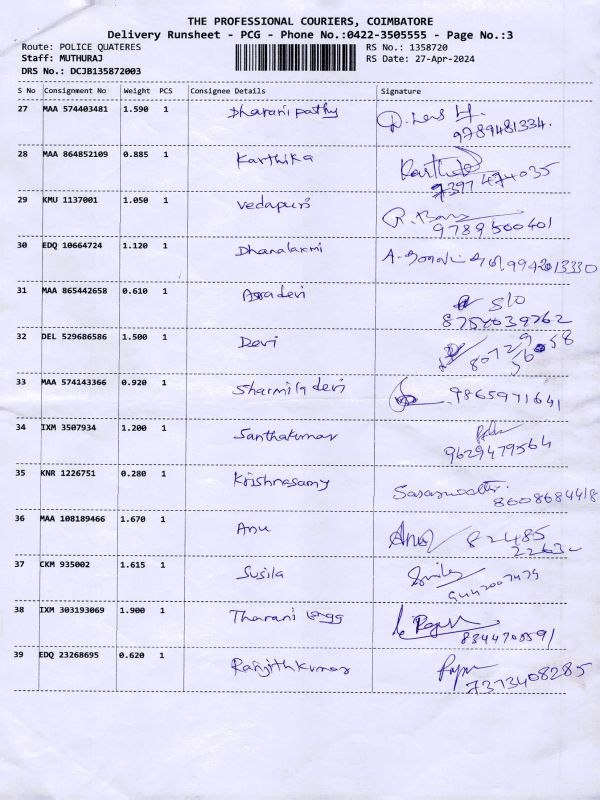 THE PROFESSIONAL COURIERS, COIMBATORE
Delivery Runsheet - PCG - Phone No.:0422-3505555 - Page No.:3
Route: POLICE QUATERES RS No.: 1358720
Staff: MUTHURAJ RS Date: 27-Apr-2024
DRS No.: DCJB135872003
S No Consignment No Weight PCS Consignee Details Signature
27 MAA 574403481 1.590 1 Dharani pathy
9789481334.
28 MAA 864852109 0.885 1 Karthika
7397474035
29 KMU 1137001 1.050 1 Vedapuri
9789500401
30 EDQ 10664724 1.120 1 Dhanalaxmi
31 MAA 865442658 0.610 1 devi S/O
8754039762
32 DEL 529686586 1.500 1 Devi
33 MAA 574143366 0.920 1 Sharmila devi 9865971641
34 IXM 3507934 1.200 1 Santhakumar
9629479564
35 KNR 1226751 0.280 1 Krishnasamy
8608684418
36 MAA 108189466 1.670 1 Anu Anu 82485
37 CKM 935002 1.615 1 Susila
38 IXM 303193069 1.900 1 Tharani
39 EDQ 23268695 0.620 1 Ranjithkumar
7373408285